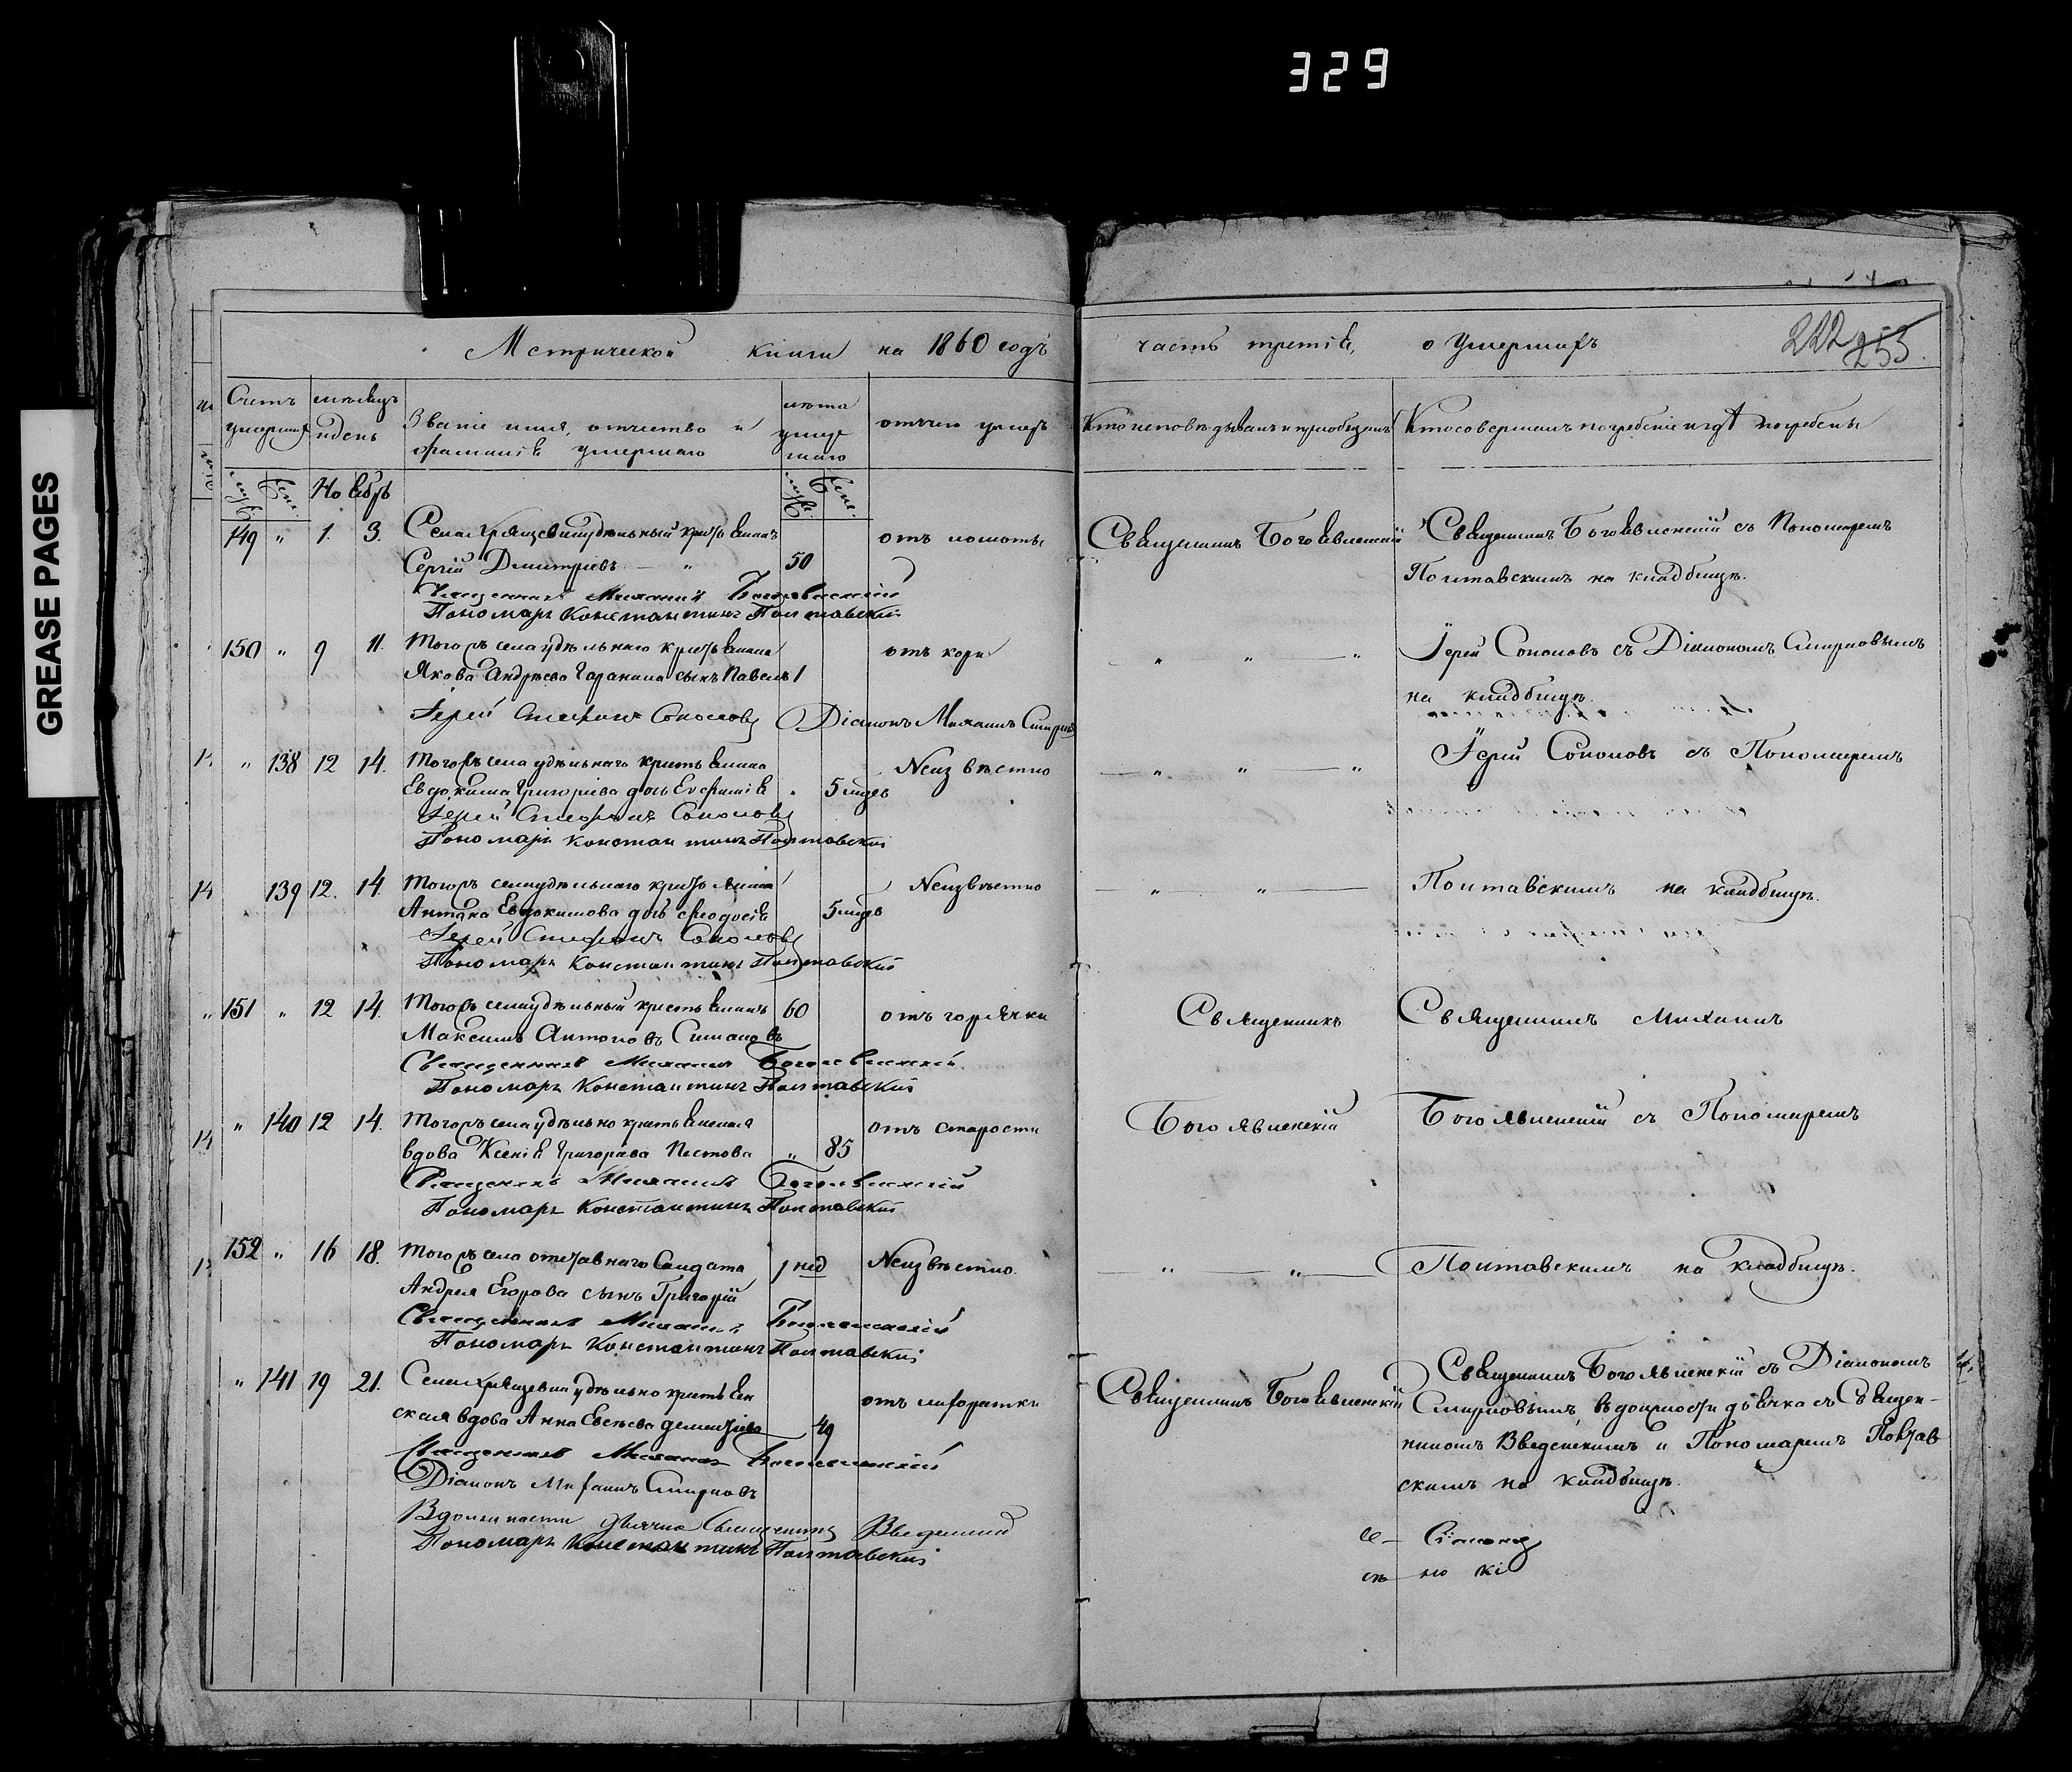 329
GREASE PAGES
Метрической книги на 1860 годъ
часть третія, о умершихъ
222 253.
Счетъ умершихъ
мѣсяцъ и день
Званіе имя, отчество и фамилія умершаго
лѣта умершаго
отъ чего умеръ
Кто исповѣдывалъ и пріобщалъ
Кто совершалъ погребеніе и гдѣ погребены
муж. жен. Ноябрь муж. жен.
149 " 1. 3. Села Хрящевки удѣльный крестьянинъ
Сергій Димитріевъ — " 50 отъ ломоты
Священникъ Богоявленскій
Священникъ Богоявленскій съ Пономаремъ
Полтавскимъ на кладбищѣ.
Священникъ Михаилъ Богоявленскій
Пономарь Константинъ Полтавскій
150 " 9 11. Тогожъ села удѣльнаго крестьянина
Якова Андреева Гаранина сынъ Павелъ 1 отъ кори
" " — "
Іерей Соколовъ съ Діакономъ Смирновымъ
на кладбищѣ.
Іерей Стефанъ Соколовъ Діаконъ Михаилъ Смирновъ
" 138 12 14. Тогожъ села удѣльнаго крестьянина
Евдокима Григорьева дочь Евфимія " 5 недѣ Неизвѣстно
— " " — "
Іерей Соколовъ съ Пономаремъ
Іерей Стефанъ Соколовъ
Пономарь Константинъ Полтавскій
14 139 12. 14. Тогожъ села удѣльнаго крестьянина
Антона Евдокимова дочь Феодосія 5 недѣ Неизвѣстно
— " " —
Полтавскимъ на кладбищѣ.
Іерей Стефанъ Соколовъ
Пономарь Константинъ Полтавскій
" 151 " 12 14. Тогожъ села удѣльный крестьянинъ 60 отъ горячки
Максимъ Антоновъ Симановъ
Священникъ
Священникъ Михаилъ
Священникъ Михаилъ Богоявленскій
Пономарь Константинъ Полтавскій
14 " 140 12 14. Тогожъ села удѣльно крестьянская
вдова Ксенія Григорьева Пестова " 85 отъ старости
Богоявленскій
Богоявленскій съ Пономаремъ
Священникъ Михаилъ Богоявленскій
Пономарь Константинъ Полтавскій
152 " 16 18. Тогожъ села отставнаго Салдата 1 нед Неизвѣстно.
Андрея Егорова сынъ Григорій
— " — " —
Полтавскимъ на кладбищѣ.
Священникъ Михаилъ Богоявленскій
Пономарь Константинъ Полтавскій
" 141 19 21. Села Хрящевки удѣльно крестьян
ская вдова Анна Евсѣева 49 отъ лихорадки
Священникъ Богоявленскій
Священникъ Богоявленскій съ Діакономъ
Смирновымъ, въ должности дьячка съ Священ-
никомъ Введенскимъ и Пономаремъ Полтав
скимъ на кладбищѣ.
Священникъ Михаилъ Богоявленскій
Діаконъ Михаилъ Смирновъ
В должности дьячка Священникъ Введенскій
Пономарь Константинъ Полтавскій